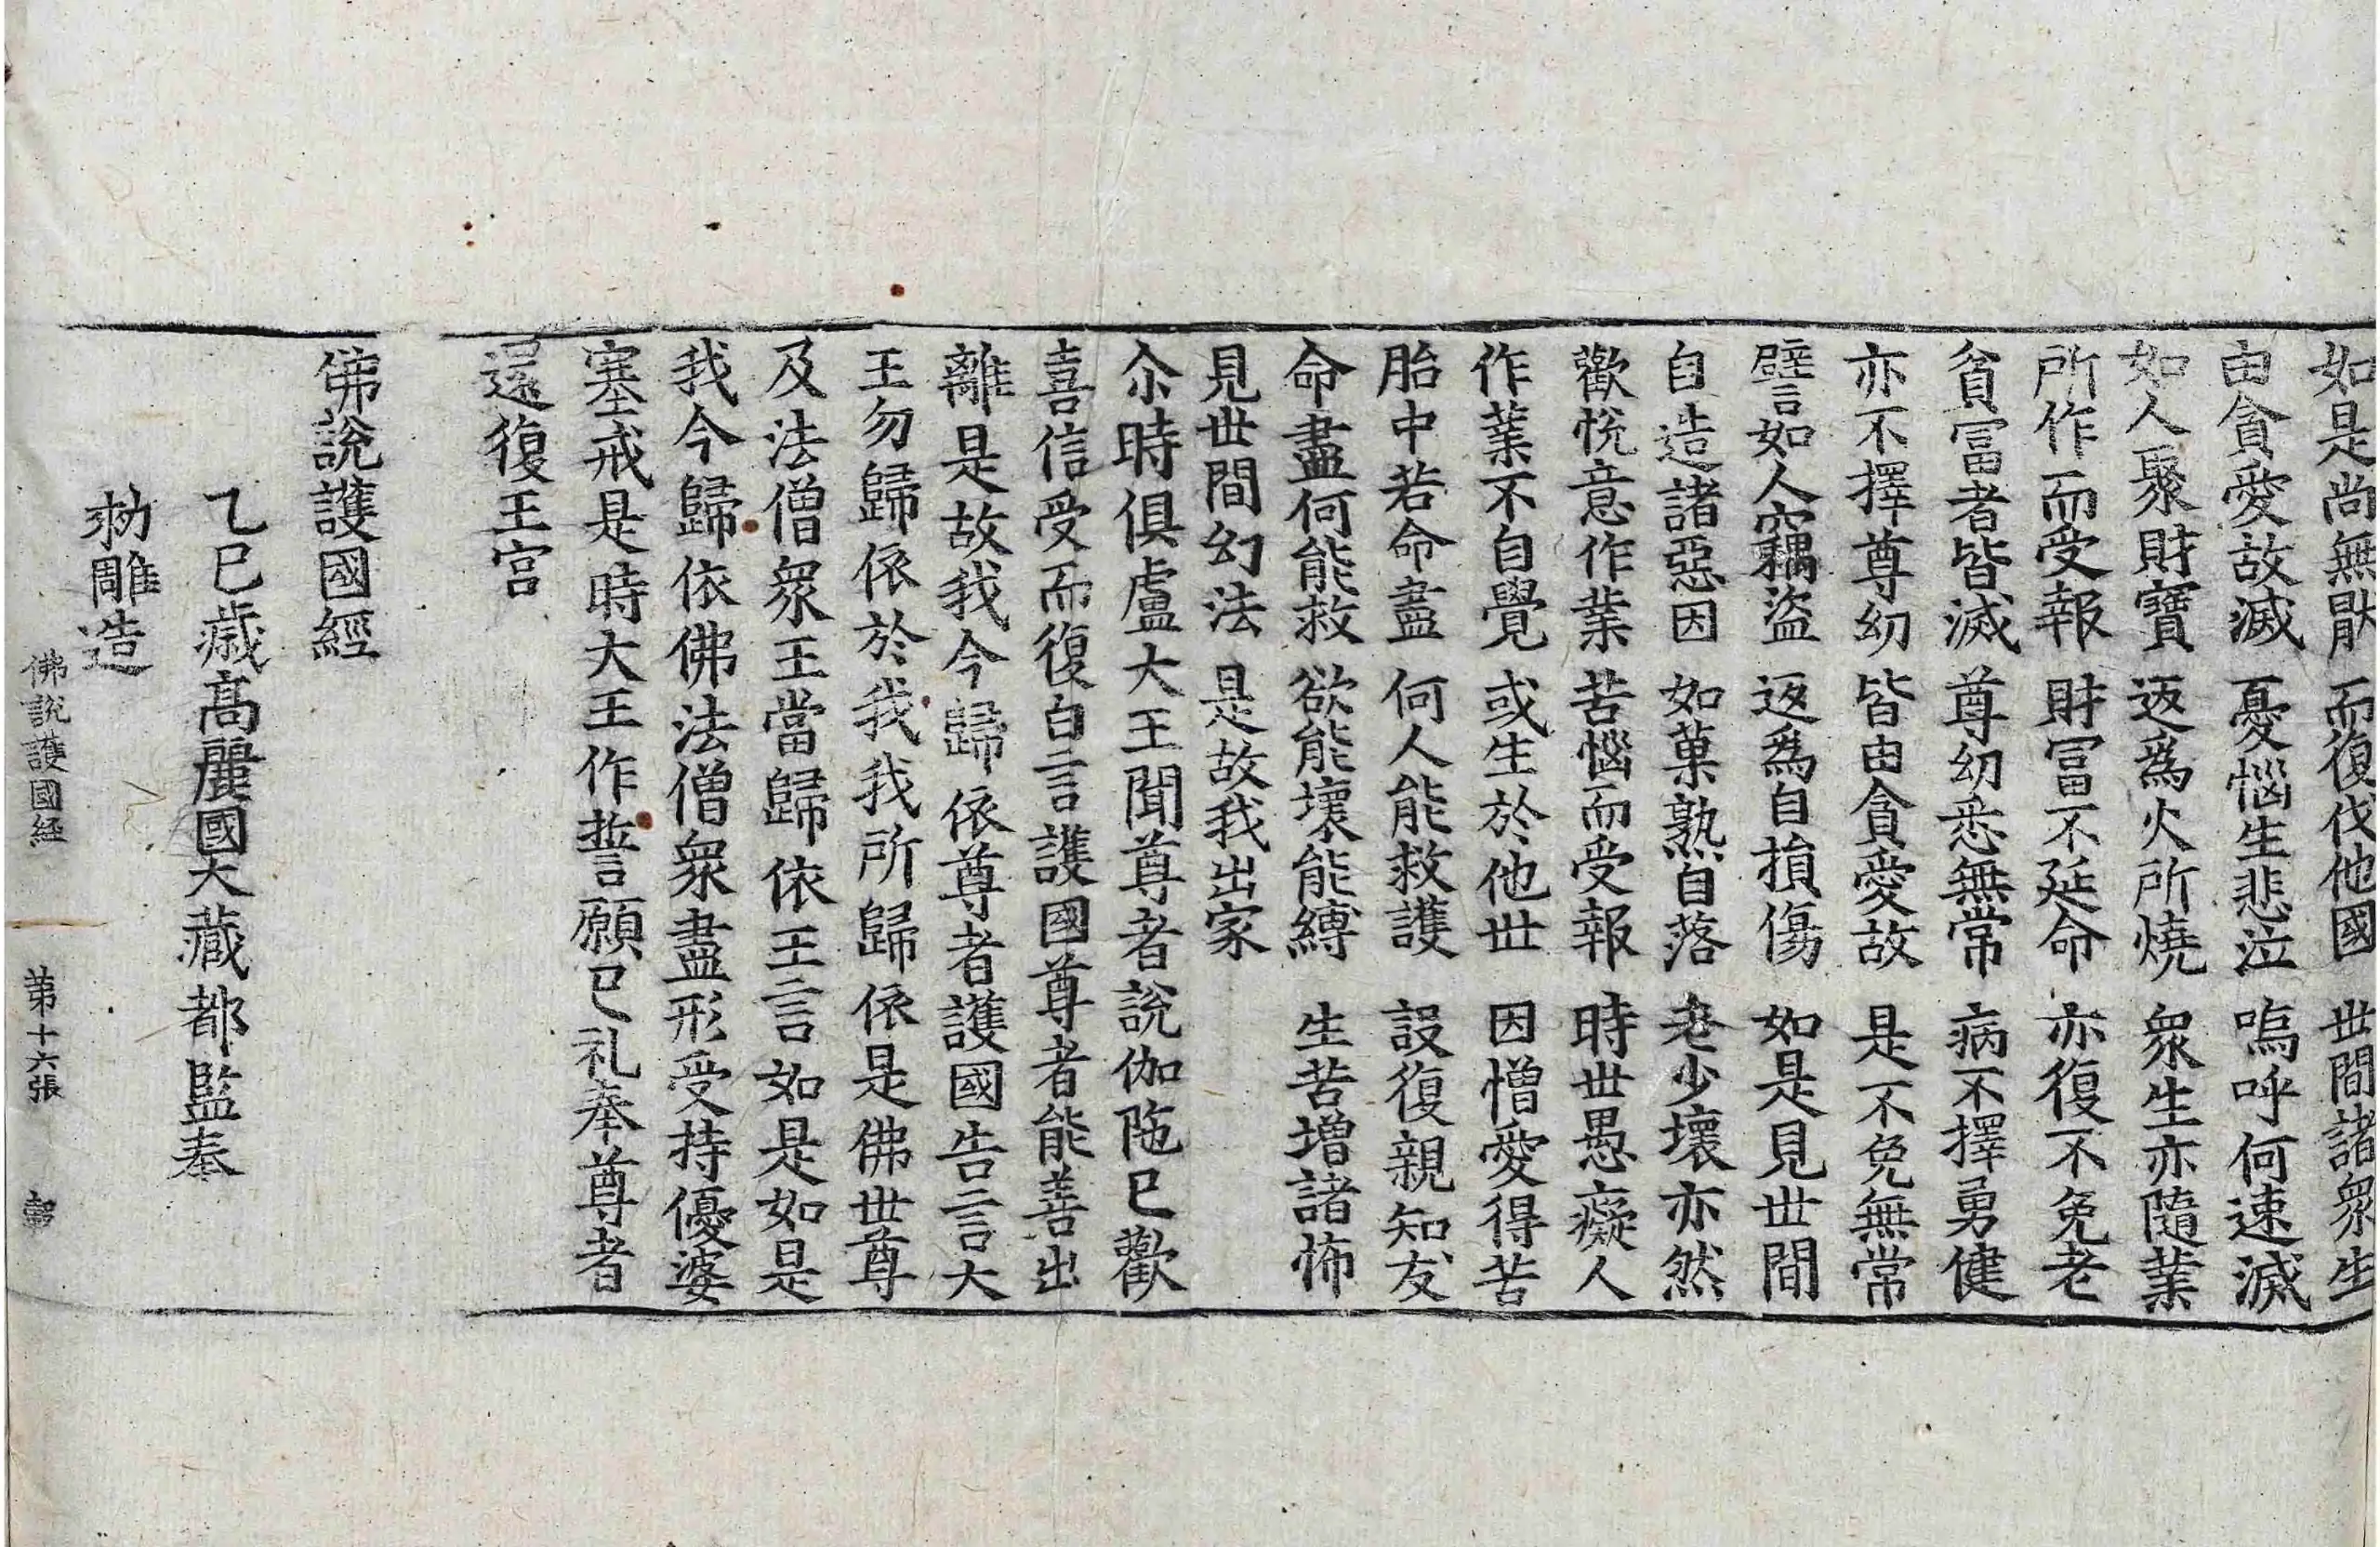 如是尚無猒 而復伐他國 世間諸衆生
由貪愛故滅 憂惱生悲泣 嗚呼何速滅
如人聚財寶 返爲火所燒 衆生亦隨業
所作而受報 財冨不延命 亦復不免老
貧冨者皆滅 尊幼悉無常 病不擇勇健
亦不擇尊幼 皆由貪愛故 是不免無常
譬如人竊盜 返爲自損傷 如是見世間
自造諸惡因 如菓熟自落 老少壞亦然
歡悅意作業 苦惱而受報 時世愚癡人
作業不自覺 或生於他世 因憎愛得苦
胎中若命盡 何人能救護 設復親知友
命盡何能救 欲能壞能縛 生苦增諸怖
見世間幻法 是故我出家
尒時俱盧大王聞尊者說伽陁已歡
喜信受而復白言護國尊者能善出
離是故我今歸依尊者護國告言大
王勿歸依於我我所歸依是佛世尊
及法僧衆王當歸依王言如是如是
我今歸依佛法僧衆盡形受持優婆
塞戒是時大王作誓願已礼奉尊者
還復王宮
佛說護國經
乙巳歲高麗國大藏都監奉
勑雕造
佛說護國経 苐十六張